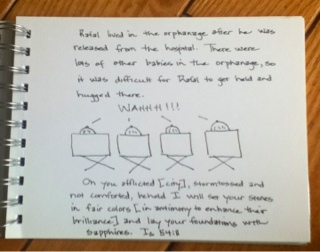 Rafal lived in the orphanage after he was
released from the hospital. There were
lots of other babies in the orphanage, so
it was difficult for Rafal to get held and
hugged there.
WAHHH!!!
Oh you afflicted [city], stormtossed and
not comforted, behold I will set your stones
in fair colors [in antimony to enhance their
brilliance] and lay your foundations with
sapphires. Is 54:11